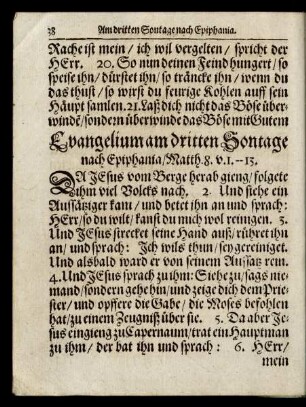 38 Am dritten Sontage nach Epiphania.
Rache ist mein/ ich wil vergelten/ spricht der
HErr. 20. So nun deinen Feind hungert/ so
speise ihn/ dürstet ihn/ so träncke ihn/ wenn du
das thust/ so wirst du feurige Kohlen auff sein
Häupt samlen. 21. Laß dich nicht das Böse über-
windē/ sondern überwinde das Böse mit Gutem
Evangelium am dritten Sontage
nach Epiphania/ Matth. 8. v. 1. - 13.
DA JEsus vom Berge herab gieng/ folgete
ihm viel Volcks nach. 2. Und siehe ein
Aussätziger kam/ und betet ihn an und sprach:
HErr/ so du wilt/ kanst du mich wol reinigen. 3.
Und JEsus strecket seine Hand auß/ rühret ihn
an/ und sprach: Ich wils thun/ sey gereiniget.
Und alsbald ward er von seinem Aussatz rein.
4. Und JEsus sprach zu ihm: Siehe zu/ sags nie-
mand/ sondern gehe hin/ und zeige dich dem Prie-
ster/ und opffere die Gabe/ die Moses befohlen
hat/ zu einem Zeugniß über sie. 5. Da aber Je-
sus eingieng zu Capernaum/ trat ein Hauptman
zu ihm/ der bat ihn und sprach: 6. HErr/
mein